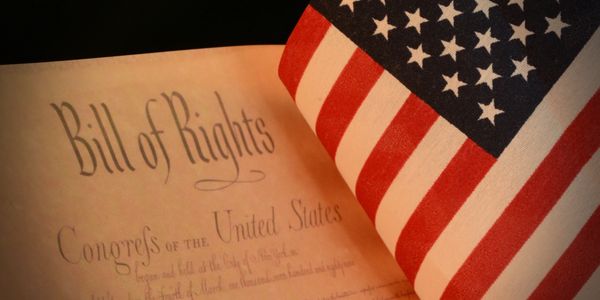 Bill of Rights
Congreſs OF THE United States
begun and held at the City of New York, on
the Fourth of March, one thousand seven hundred and eighty nine